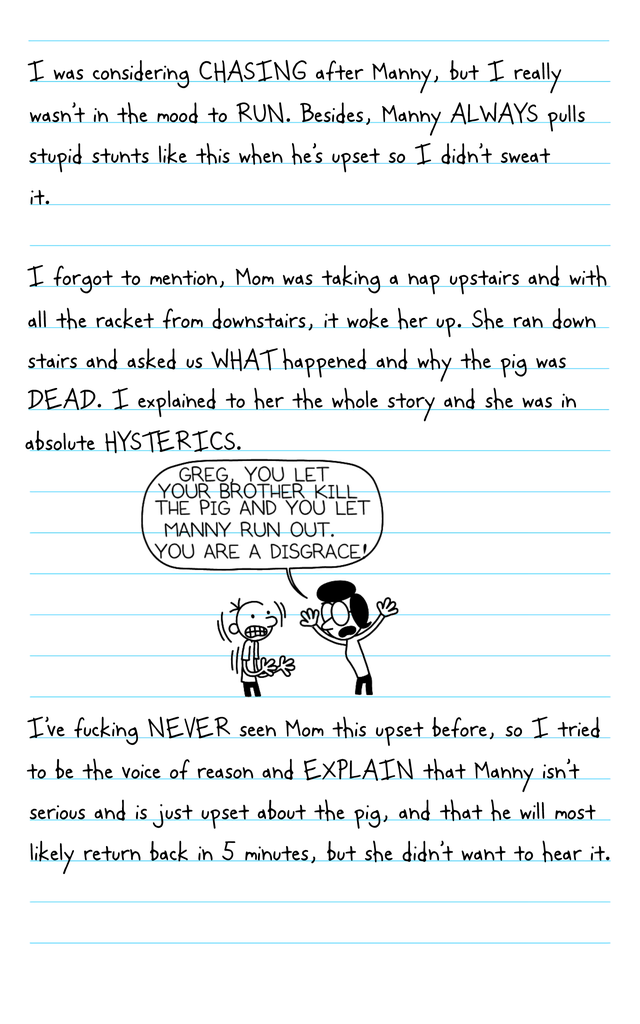 I was considering CHASING after Manny, but I really
wasn't in the mood to RUN. Besides, Manny ALWAYS pulls
stupid stunts like this when he's upset so I didn't sweat
it.
I forgot to mention, Mom was taking a nap upstairs and with
all the racket from downstairs, it woke her up. She ran down
stairs and asked us WHAT happened and why the pig was
DEAD. I explained to her the whole story and she was in
absolute HYSTERICS.
GREG, YOU LET
YOUR BROTHER KILL
THE PIG AND YOU LET
MANNY RUN OUT.
YOU ARE A DISGRACE!
I've fucking NEVER seen Mom this upset before, so I tried
to be the voice of reason and EXPLAIN that Manny isn't
serious and is just upset about the pig, and that he will most
likely return back in 5 minutes, but she didn't want to hear it.